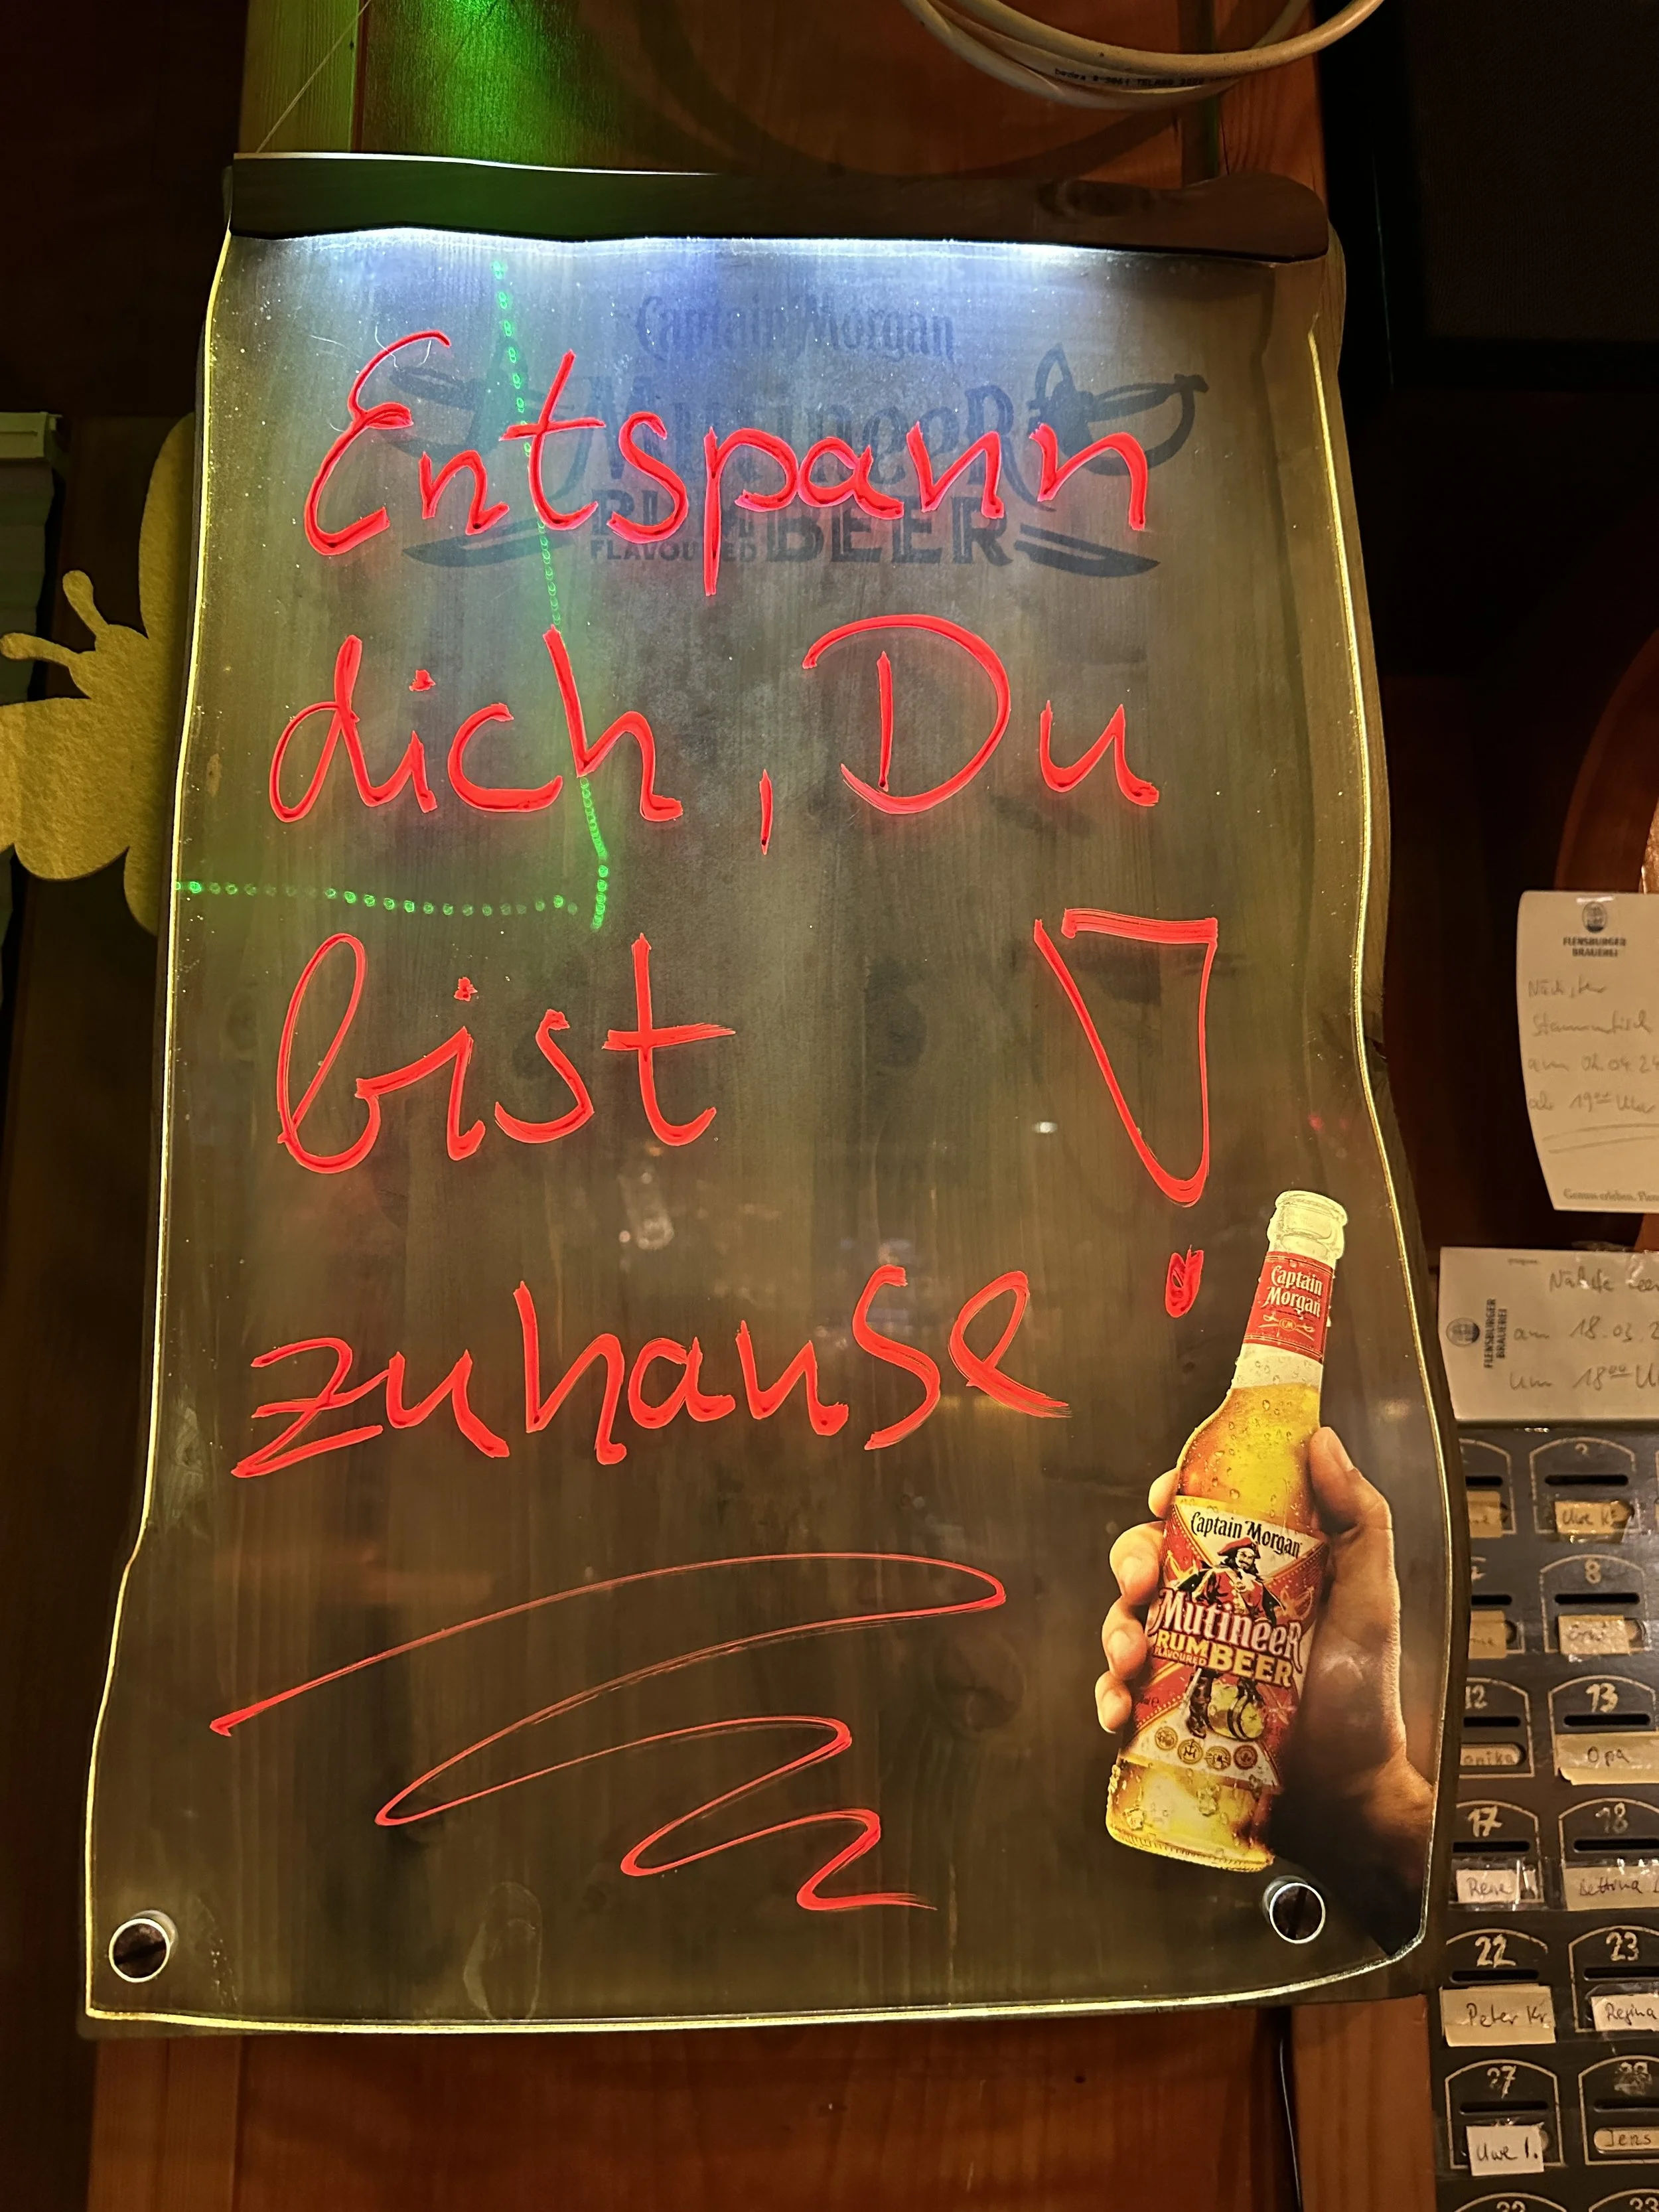 Captain Morgan
MutineeR
RUM BEER
FLAVOURED
Entspann
dich, Du
bist
zuhause !
Captain
Morgan
Captain Morgan
MutineeR
RUM BEER
FLAVOURED
FLENSBURGER
BRAUEREI
Nächster
Stammtisch
am 02.04.24
ab 19⁰⁰ Uhr
Genuss erleben.
FLENSBURGER
BRAUEREI
am 18.03.2
um 18⁰⁰ U
Uwe K
8
12 13
Opa
17 18
Rene Bettina
22 23
Peter Kr. Regina
27
Uwe I. Jens